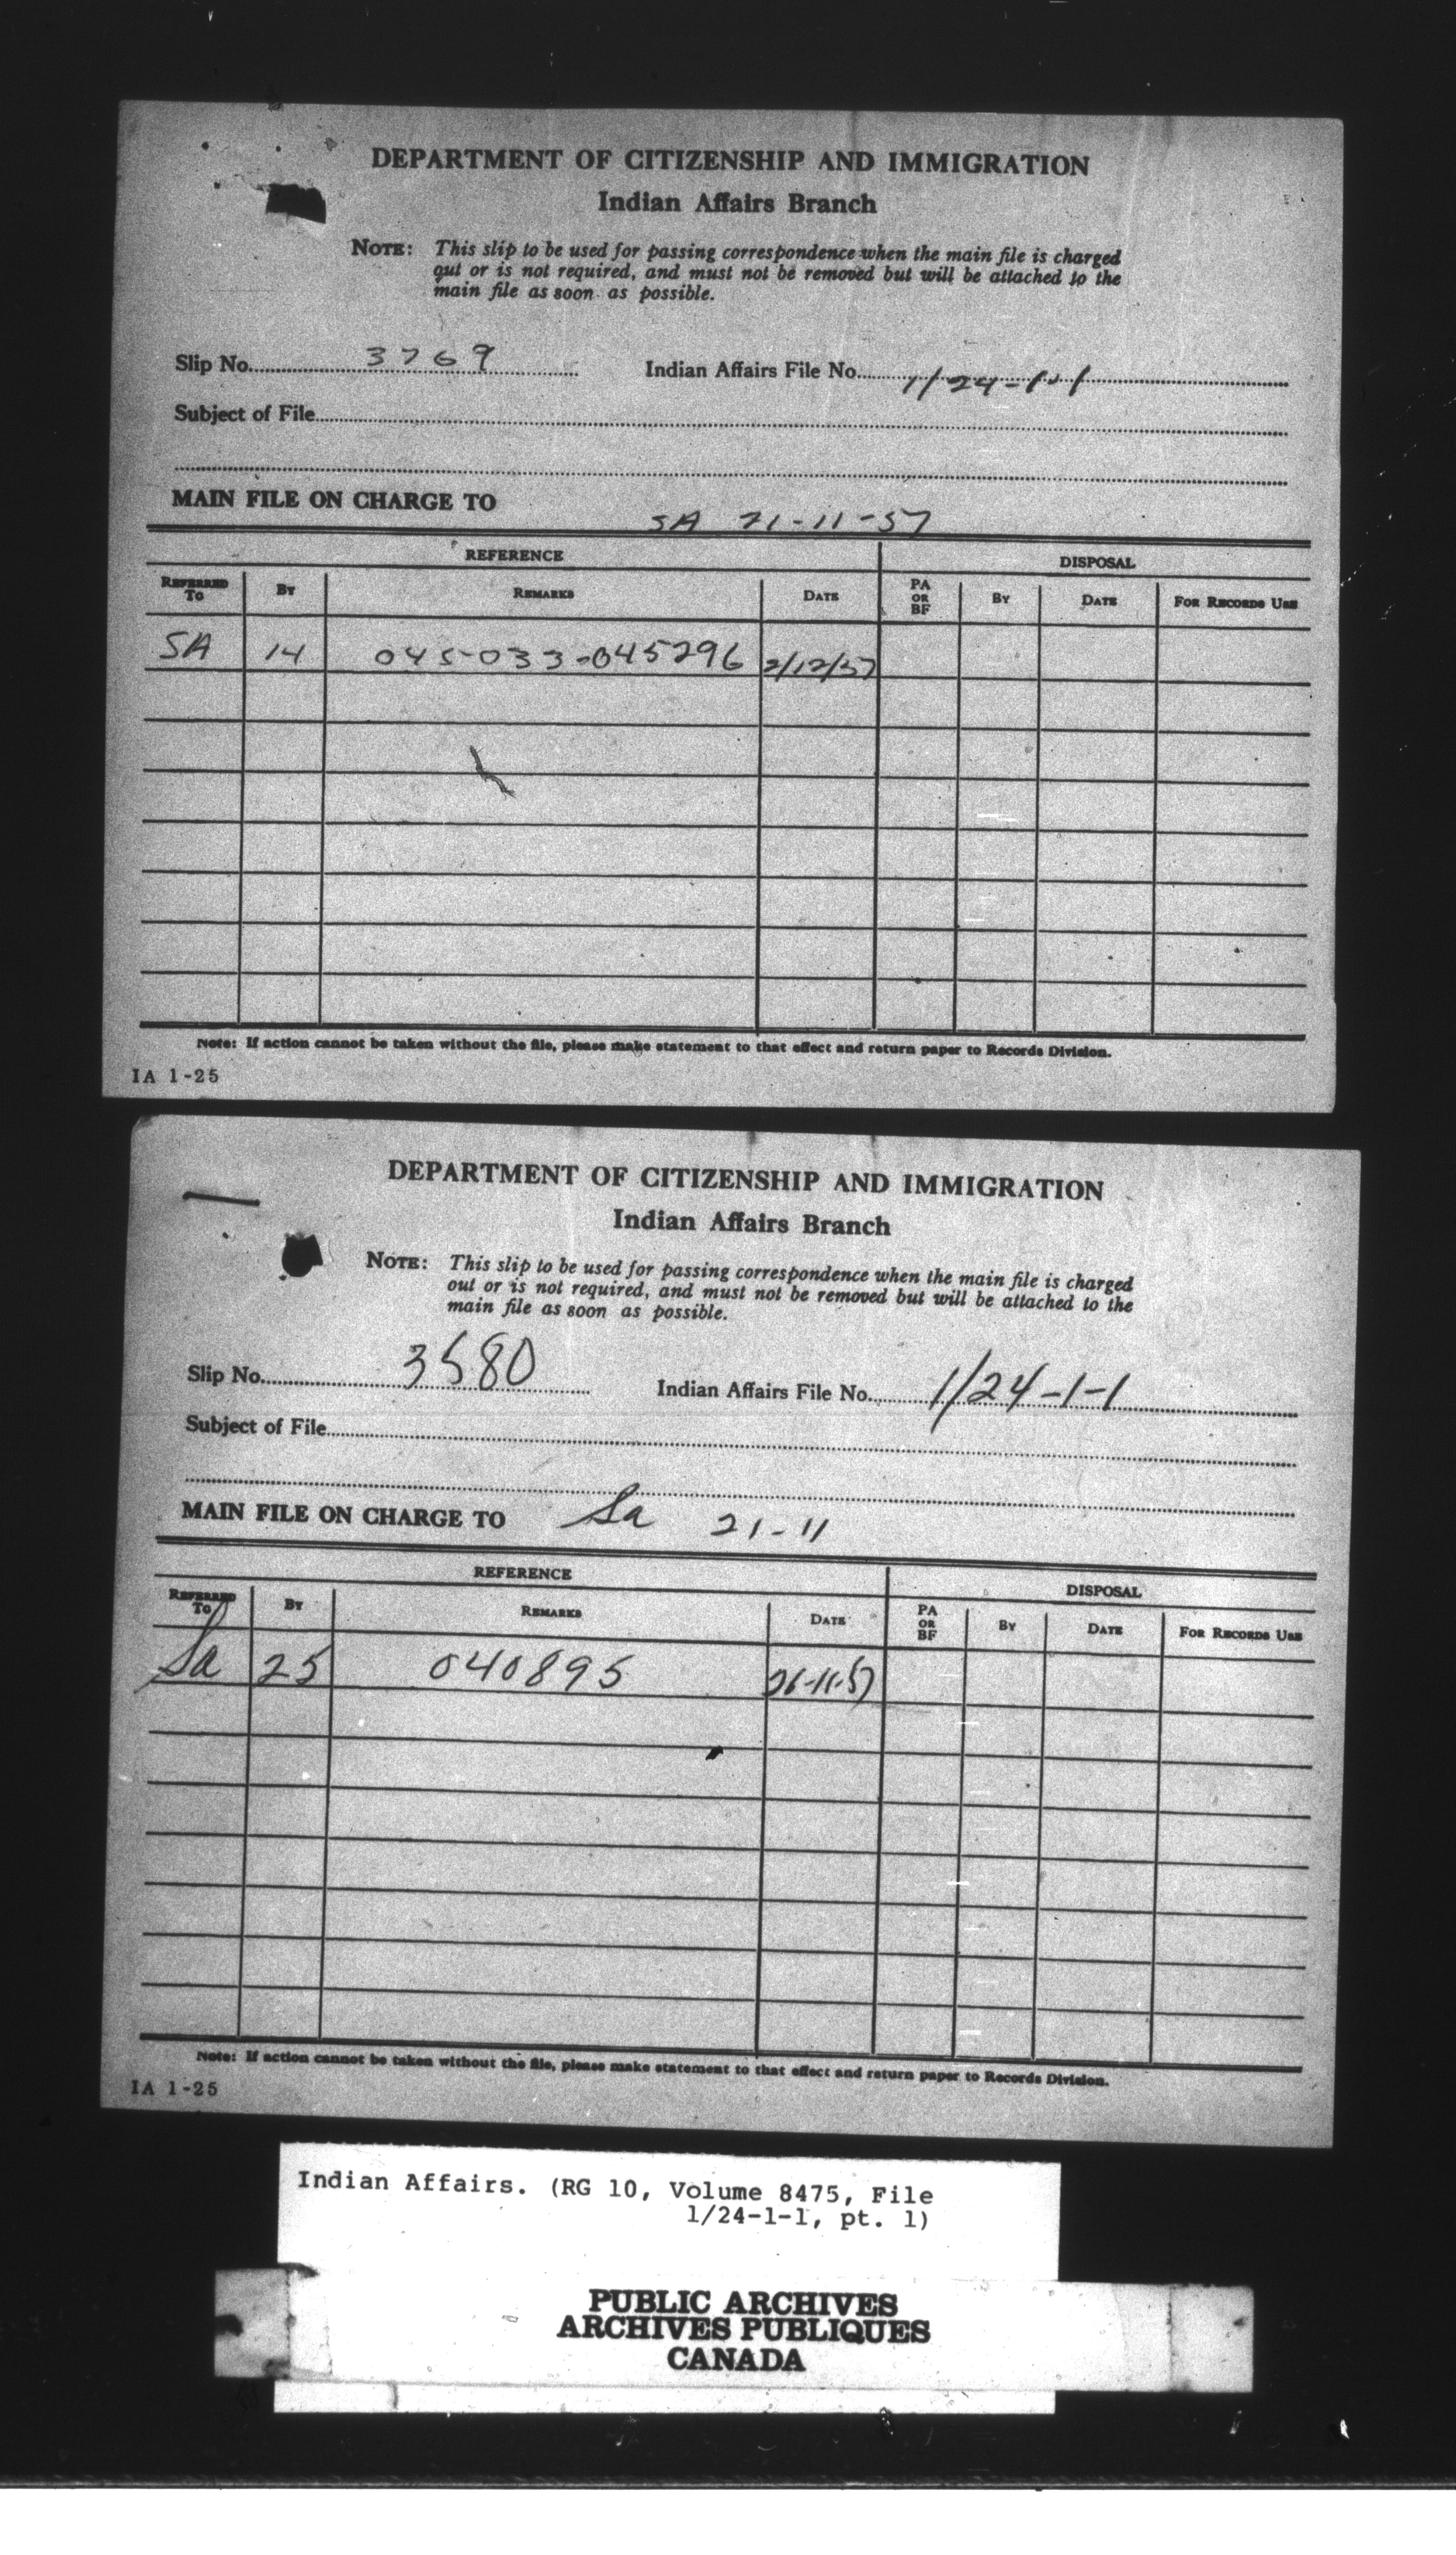 DEPARTMENT OF CITIZENSHIP AND IMMIGRATION
Indian Affairs Branch
NOTE: This slip to be used for passing correspondence when the main file is charged
out or is not required, and must not be removed but will be attached to the
main file as soon as possible.
Slip No. 3769 Indian Affairs File No. 1/24-1-1
Subject of File
MAIN FILE ON CHARGE TO SA 21-11-57
REFERENCE DISPOSAL
REFERRED TO BY REMARKS DATE PA OR BF BY DATE FOR RECORDS USE
SA 14 045-033-045296 2/12/57
Note: If action cannot be taken without the file, please make statement to that effect and return paper to Records Division.
IA 1-25
DEPARTMENT OF CITIZENSHIP AND IMMIGRATION
Indian Affairs Branch
NOTE: This slip to be used for passing correspondence when the main file is charged
out or is not required, and must not be removed but will be attached to the
main file as soon as possible.
Slip No. 3580 Indian Affairs File No. 1/24-1-1
Subject of File
MAIN FILE ON CHARGE TO Sa 21-11
REFERENCE DISPOSAL
REFERRED TO BY REMARKS DATE PA OR BF BY DATE FOR RECORDS USE
Sa 25 040895 26-11-57
Note: If action cannot be taken without the file, please make statement to that effect and return paper to Records Division.
IA 1-25
Indian Affairs. (RG 10, Volume 8475, File
1/24-1-1, pt. 1)
PUBLIC ARCHIVES
ARCHIVES PUBLIQUES
CANADA